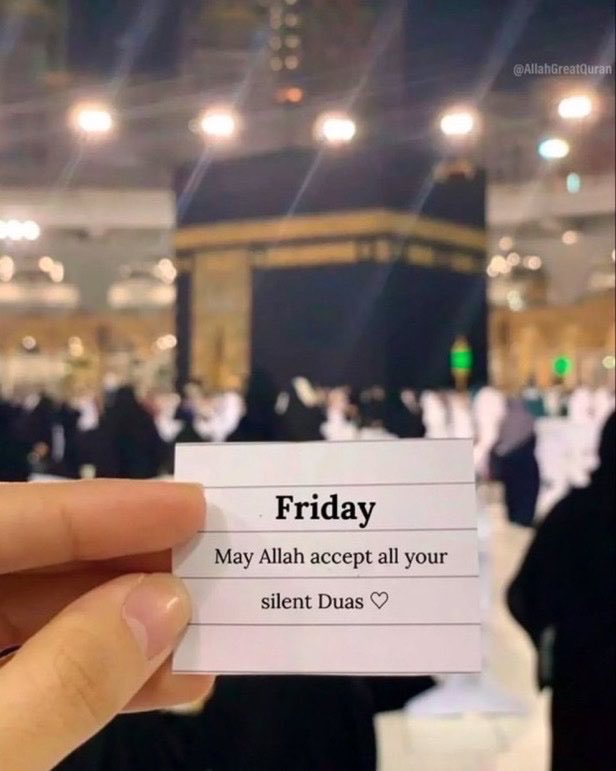 @AllahGreatQuran
Friday
May Allah accept all your
silent Duas ♡